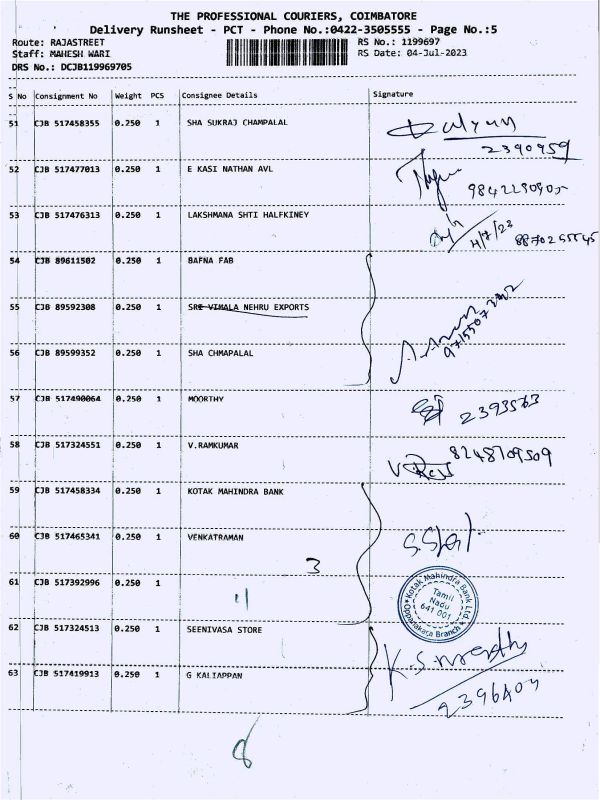 THE PROFESSIONAL COURIERS, COIMBATORE
Delivery Runsheet - PCT - Phone No.:0422-3505555 - Page No.:5
Route: RAJASTREET RS No.: 1199697
Staff: MAHESH WARI RS Date: 04-Jul-2023
DRS No.: DCJB119969705
S No Consignment No Weight PCS Consignee Details Signature
51 CJB 517458355 0.250 1 SHA SUKRAJ CHAMPALAL
2390959
52 CJB 517477013 0.250 1 E KASI NATHAN AVL
53 CJB 517476313 0.250 1 LAKSHMANA SHTI HALFKINEY
4/7/23
54 CJB 89611502 0.250 1 BAFNA FAB
55 CJB 89592308 0.250 1 SRE VIMALA NEHRU EXPORTS
56 CJB 89599352 0.250 1 SHA CHMAPALAL
57 CJB 517490064 0.250 1 MOORTHY
2393563
58 CJB 517324551 0.250 1 V.RAMKUMAR
8248709509
59 CJB 517458334 0.250 1 KOTAK MAHINDRA BANK
60 CJB 517465341 0.250 1 VENKATRAMAN
3
61 CJB 517392996 0.250 1
Kotak Mahindra Bank Ltd.
Tamil
Nadu
641 001
Oppanakara Branch
62 CJB 517324513 0.250 1 SEENIVASA STORE
63 CJB 517419913 0.250 1 G KALIAPPAN
8